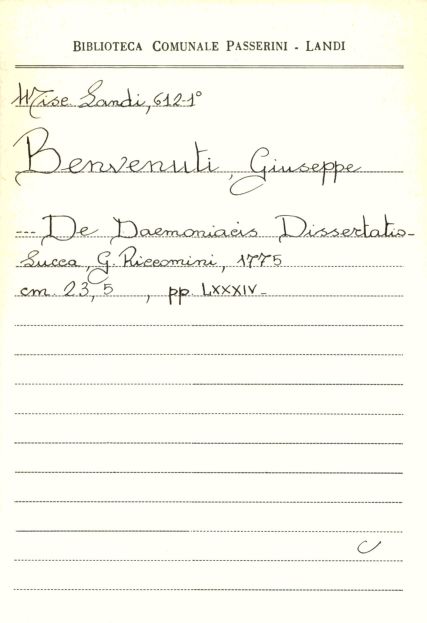 BIBLIOTECA COMUNALE PASSERINI - LANDI
Misc. Landi, 612-1°
Benvenuti, Giuseppe
--- De Daemoniacis Dissertatio-
Lucca, G. Riccomini, 1775
cm. 23,5 , pp. LXXXIV-